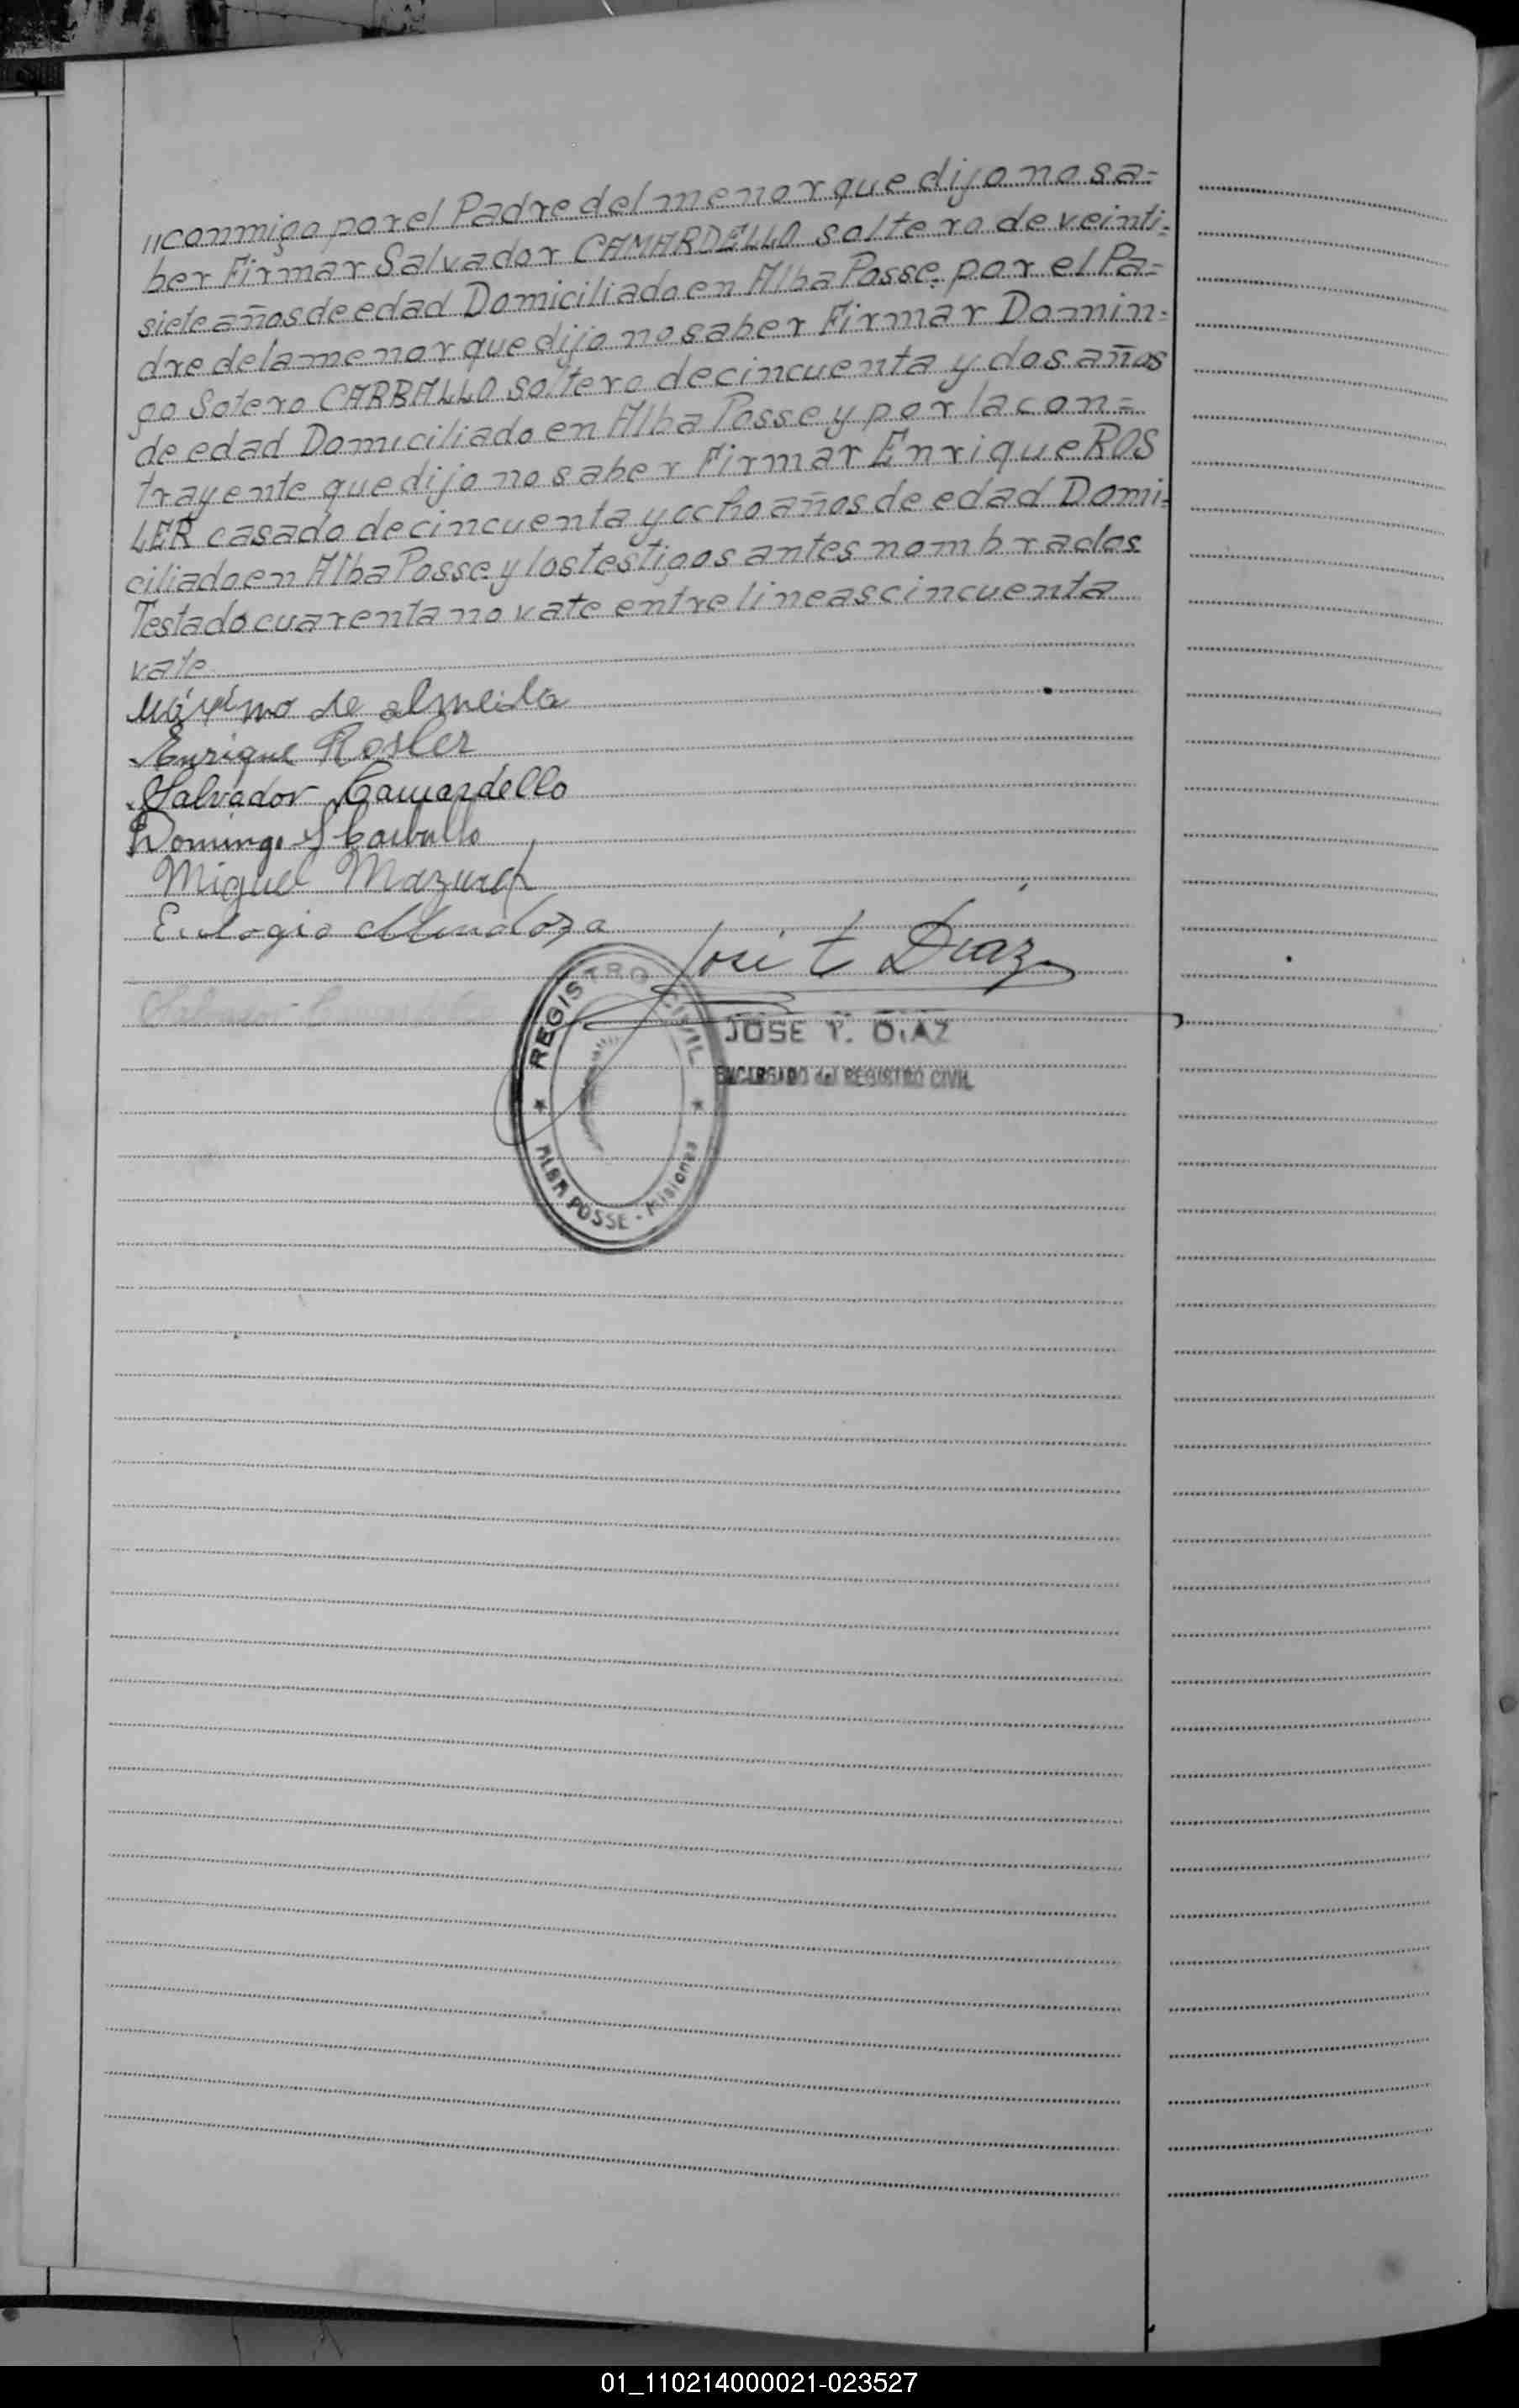 "conmigo por el Padre del menor que dijo no sa=
ber Firmar Salvador CAMARDELLO soltero de veinti=
siete años de edad Domiciliado en Alba Posse, por el Pa=
dre de la menor que dijo no saber Firmar Domin=
go Sotero CARBALLO soltero de cincuenta y dos años
de edad Domiciliado en Alba Posse y por la con=
trayente que dijo no saber Firmar Enrique ROS
LER casado de cincuenta y ocho años de edad Domi=
ciliado en Alba Posse y los testigos antes nombrados
Testado cuarenta no vale entre lineas cincuenta
vale
Máximo de almeida
Enrique Rosler
Salvador Camardello
Domingo S Carballo
Miguel
Eulogio Mendoza
José t Diaz
Salvador Camardello
REGISTRO CIVIL
ALBA POSSE - Misiones
JOSE T. DIAZ
ENCARGADO del REGISTRO CIVIL
01_110214000021-023527